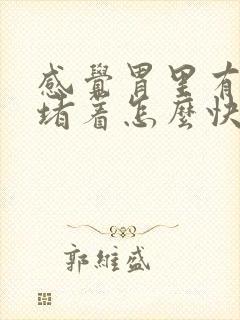 感覺胃里有
堵着怎麼快
郭維盛